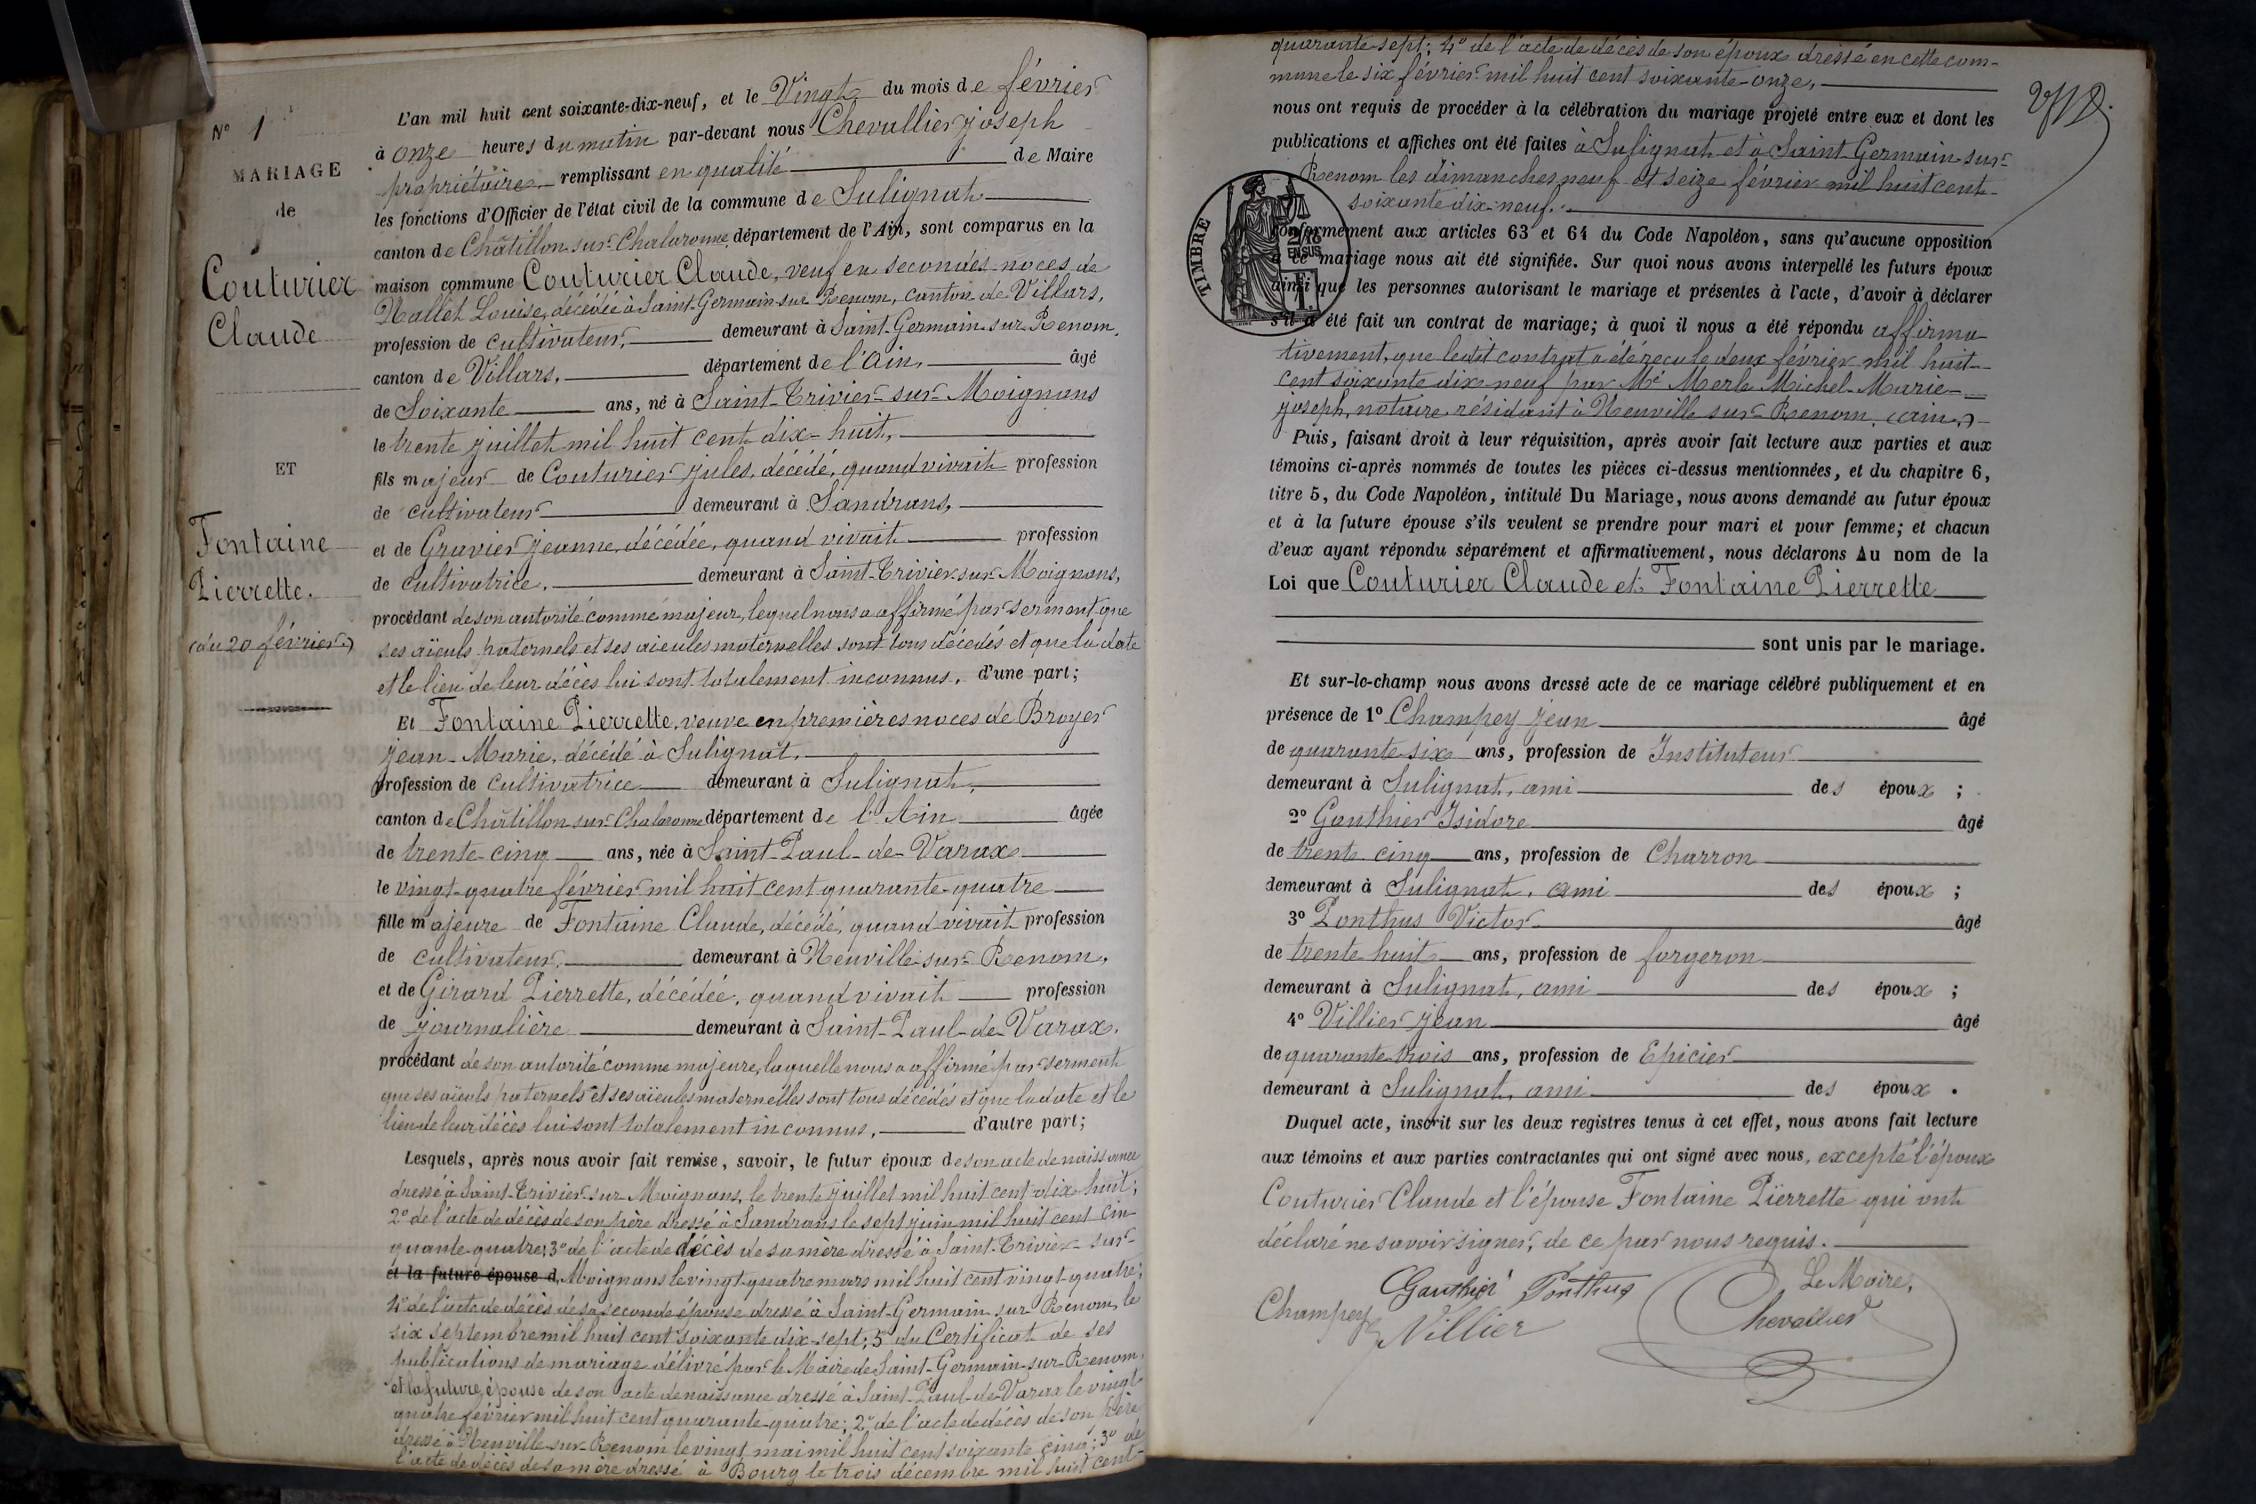 N° 1
MARIAGE
de
Couturier
Claude
ET
Fontaine
Pierrette.
(du 20 février)
L'an mil huit cent soixante-dix-neuf, et le Vingt du mois de février
à onze heures du matin par-devant nous Chevallier joseph
propriétaire remplissant en qualité de Maire
les fonctions d'Officier de l'état civil de la commune de Sulignat
canton de Châtillon-sur-Chalaronne département de l'Ain, sont comparus en la
maison commune Couturier Claude, veuf en secondes noces de
Nallet Louise, décédée à Saint-Germain-sur-Renom, canton de Villars,
profession de cultivateur, demeurant à Saint-Germain-sur-Renom,
canton de Villars, département de l'ain, âgé
de Soixante ans, né à Saint-Trivier-sur-Moignans
le trente juillet mil huit cent dix-huit,
fils majeur de Couturier jules, décédé, quand vivait profession
de cultivateur demeurant à Sandrans,
et de Gravier jeanne, décédée, quand vivait profession
de cultivatrice, demeurant à Saint-Trivier-sur-Moignans,
procédant de son autorité comme majeur, lequel nous a affirmé par serment que
ses aïeuls paternels et ses aïeules maternelles sont tous décédés et que la date
et le lieu de leur décès lui sont totalement inconnus, d'une part;
Et Fontaine Pierrette, veuve en premières noces de Broyer
jean-Marie, décédé à Sulignat,
profession de cultivatrice demeurant à Sulignat,
canton de Châtillon-sur-Chalaronne département de l'Ain âgée
de trente-cinq ans, née à Saint-Paul-de-Varax
le vingt-quatre février mil huit cent quarante-quatre
fille majeure de Fontaine Claude, décédé, quand vivait profession
de cultivateur, demeurant à Neuville-sur-Renom,
et de Girard Pierrette, décédée, quand vivait profession
de journalière demeurant à Saint-Paul-de-Varax,
procédant de son autorité comme majeure, laquelle nous a affirmé par serment
que ses aïeuls paternels et ses aïeules maternelles sont tous décédés et que la date et le
lieu de leur décès lui sont totalement inconnus, d'autre part;
Lesquels, après nous avoir fait remise, savoir, le futur époux de son acte de naissance
dressé à Saint-Trivier-sur-Moignans, le trente juillet mil huit cent dix-huit;
2° de l'acte de décès de son père dressé à Sandrans le sept juin mil huit cent cin-
quante-quatre; 3° de l'acte de décès de sa mère dressé à Saint-Trivier-sur-
et la future épouse d Moignans le vingt-quatre mars mil huit cent vingt-quatre;
4° de l'acte de décès de sa seconde épouse dressé à Saint-Germain-sur-Renom, le
six septembre mil huit cent soixante dix-sept; 5° du Certificat de ses
publications de mariage délivré par le Maire de Saint-Germain-sur-Renom,
et la future épouse de son acte de naissance dressé à Saint-Paul-de-Varax le vingt-
quatre février mil huit cent quarante-quatre; 2° de l'acte de décès de son père
dressé à Neuville-sur-Renom le vingt mai mil huit cent soixante cinq; 3° de
l'acte de décès de sa mère dressé à Bourg le trois décembre mil huit cent-
quarante-sept; 4° de l'acte de décès de son époux dressé en cette com-
mune le six février mil huit cent soixante-onze,
nous ont requis de procéder à la célébration du mariage projeté entre eux et dont les
publications et affiches ont été faites à Sulignat et à Saint-Germain-sur-
Renom les dimanches neuf et seize février mil huit cent-
soixante dix-neuf.
TIMBRE
2/10
EN SUS
conformément aux articles 63 et 64 du Code Napoléon, sans qu'aucune opposition
à ce mariage nous ait été signifiée. Sur quoi nous avons interpellé les futurs époux
ainsi que les personnes autorisant le mariage et présentes à l'acte, d'avoir à déclarer
s'il a été fait un contrat de mariage; à quoi il nous a été répondu affirma-
tivement, que ledit contrat a été reçu le deux février mil huit-
cent soixante dix-neuf par Me Merle Michel-Marie-
joseph, notaire résidant à Neuville-sur-Renom, (ain,)
Puis, faisant droit à leur réquisition, après avoir fait lecture aux parties et aux
témoins ci-après nommés de toutes les pièces ci-dessus mentionnées, et du chapitre 6,
titre 5, du Code Napoléon, intitulé Du Mariage, nous avons demandé au futur époux
et à la future épouse s'ils veulent se prendre pour mari et pour femme; et chacun
d'eux ayant répondu séparément et affirmativement, nous déclarons Au nom de la
Loi que Couturier Claude et Fontaine Pierrette
sont unis par le mariage.
Et sur-le-champ nous avons dressé acte de ce mariage célébré publiquement et en
présence de 1° Champey jean âgé
de quarante-six ans, profession de Instituteur
demeurant à Sulignat, ami des époux ;
2° Gauthier Isidore âgé
de trente-cinq ans, profession de Charron
demeurant à Sulignat, ami des époux ;
3° Ponthus Victor âgé
de trente huit ans, profession de forgeron
demeurant à Sulignat, ami des époux ;
4° Villier jean âgé
de quarante-trois ans, profession de Epicier
demeurant à Sulignat, ami des époux .
Duquel acte, inscrit sur les deux registres tenus à cet effet, nous avons fait lecture
aux témoins et aux parties contractantes qui ont signé avec nous, excepté l'époux
Couturier Claude et l'épouse Fontaine Pierrette qui ont
déclaré ne savoir signer, de ce par nous requis.
Gauthier Ponthus Le Maire,
Champey Villier Chevallier